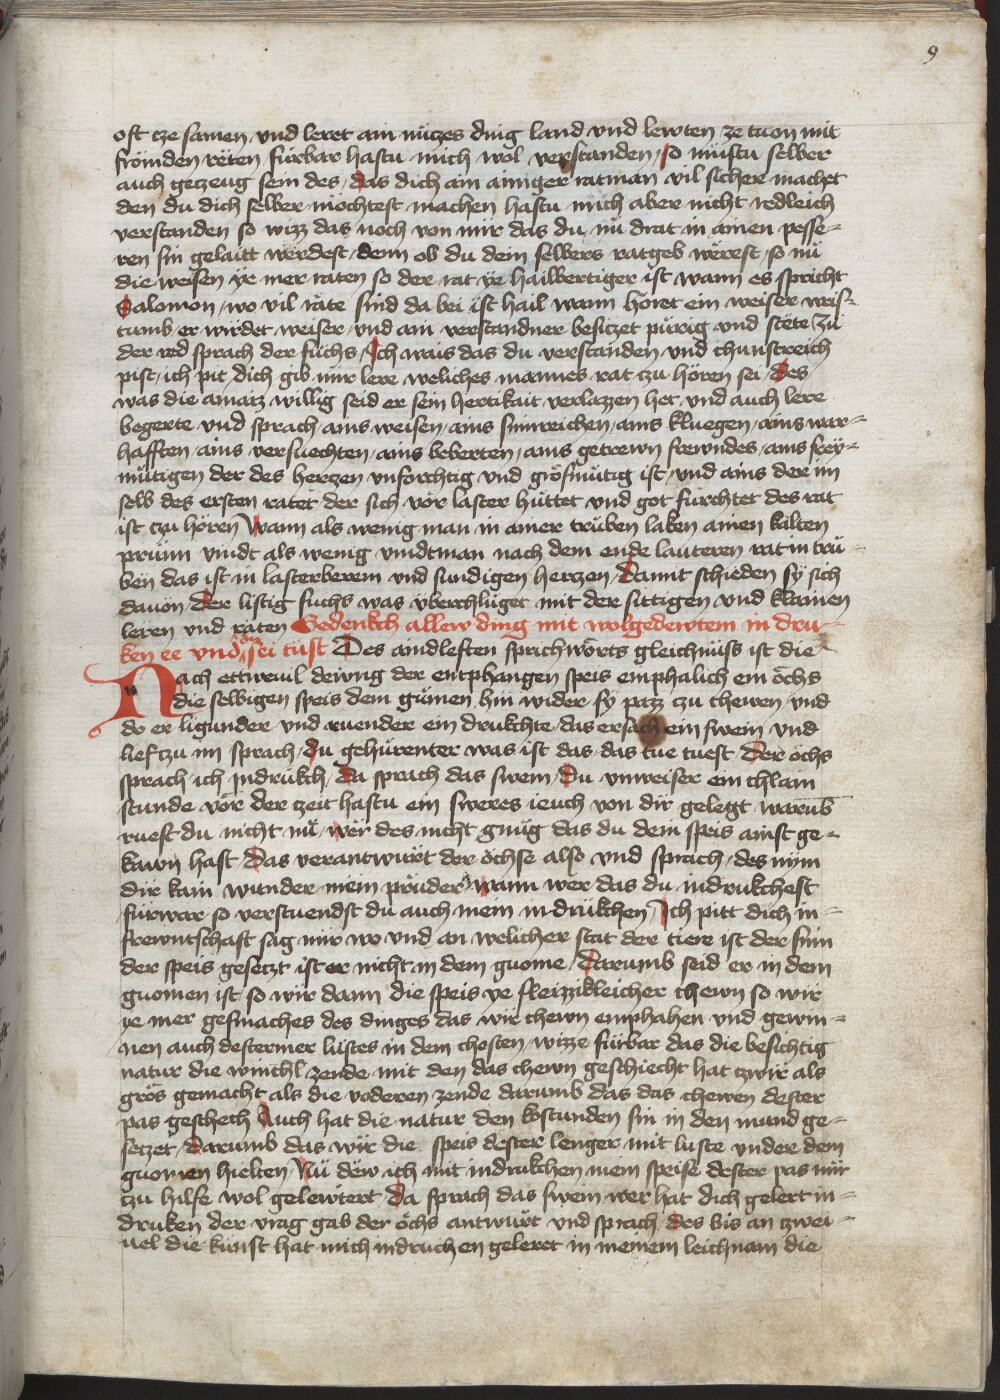 9
oft cze samen vnd leret ain nüczes ding land vnd lewten ze tuon mit
frömden räten fürbar hastu mich wol verstanden so müstu selber
auch geczeug sein des das dich ain ainiger ratman vil sicher machet
den du dich selber mochtest machen hastu mich aber nicht redleich
verstanden so wizz das noch von mir das du nü drat in ainen pesse-
ren sin gelaitt werdest denn ob du dein selbers ratgeb wërest so nü
die weisen ye mer raten so der rat ye hailbertiger ist wann es spricht
Salomon wo vil räte sind da bei ist hail wann höret ein weiser weis-
tumb er wirdet weiser vnd ain verstandner besiczet pürig vnd stëte zü
der red sprach der fuchs Ich wais das du verstanden vnd chunstreich
pist ich pit dich gib mir lere weliches mannes rat zu hören sei des
was die amaiz willig seid er sein hertikait verlazzen het vnd auch lere
begerte vnd sprach ains weisen ains sinnreichen ains kluegen ains war-
hafften ains versuechten ains beberten ains getrewn frewndes ains frey-
mütigen der des herczen vnforchtig vnd grösmütig ist vnd ains der im
selb des ersten ratet der sich vor laster hüttet vnd got fürchtet des rat
ist czu hören Wann als wenig man in ainer trüben laken ainen kalten
prünn vindt als wenig vindtman nach dem ende lauteren rat in trü-
ben das ist in lasterberem vnd sundigen herczen Damit schieden sy sich
dauon der listig fuchs was überchlüget mit der sittigen vnd klainen
leren vnd räten Gedenkch allew ding mit wolgedewtem in dru-
ken ee vnd du sei tüst Des aindleften sprichwörts gleichnüss ist die
Nach ettweuil dewng der entphangen speis emphalich ein öchs
die selbigen speis dem gümen hin wider sy patz zu chewen vnd
do er ligunder vnd ruender ein drukchte das ersach ein swein vnd
lief tzu im sprach du gehürenter was ist das das tüe tuest Der öchs
sprach ich indrükch da sprach das swein Du vnweiser ein chlain
stunde vör der czeit hastu ein sweres ieuch von dir gelegt warub
ruest du nicht nü wër des nicht gnüg das du dein speis ainst ge-
kawn hast Das verantwürt der öchse also vnd sprach des nym
dir kain wunder mein prüder wann wer das du indrukchest
fürwar so verstuendst du auch mein indrükchen Ich pitt dich in-
frewntschaft sag mir wo vnd an welicher stat der tiere ist der sinn
der speis geseczt ist er nicht in dem guome Darumb seid er in dem
guomen ist so wir dann die speis ye fleizzikleicher chewn so wir
ye mer gesmaches des dinges das wir chewn emphahen vnd gewin-
nen auch destermer lüstes in dem chosten wizze fürbar das die besichtig
natur die winchl zende mit den das chewn geschiecht hat czwir als
grös gemacht als die voderen zende darumb das das chewen dester
pas geschech Auch hat die natur den kostunden sin in den mund ge-
seczet Darumb das wir die speis dester lenger mit luste vnder dem
guomen hielten Nü dëw ich mit indrukchen mein speise dester pas mir
zu hilfe wol gelewtert Da sprach das swein wer hat dich gelert in-
druken der vrag gab der öchs antwurt vnd sprach des bis an czwei-
uel die kunst hat mich indruchen geleret in meinem leichnam die